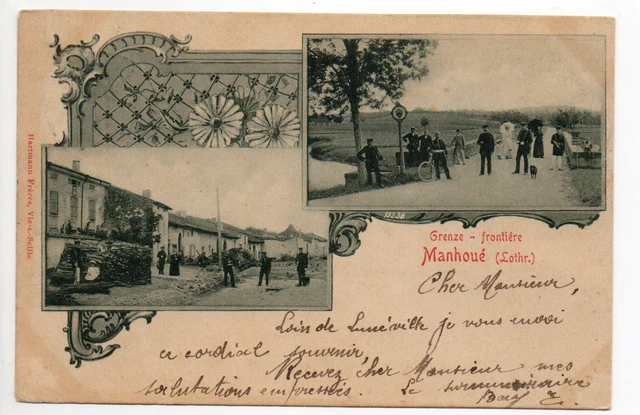 Hartmann Frères, Vic-s.-Seille
10238
Grenze - frontiére
Manhoué (Lothr.)
Cher Monsieur,
Loin de Lunéville je vous envoi
ce cordial souvenir,
Recevez cher Monsieur mes
salutations empressées. Le